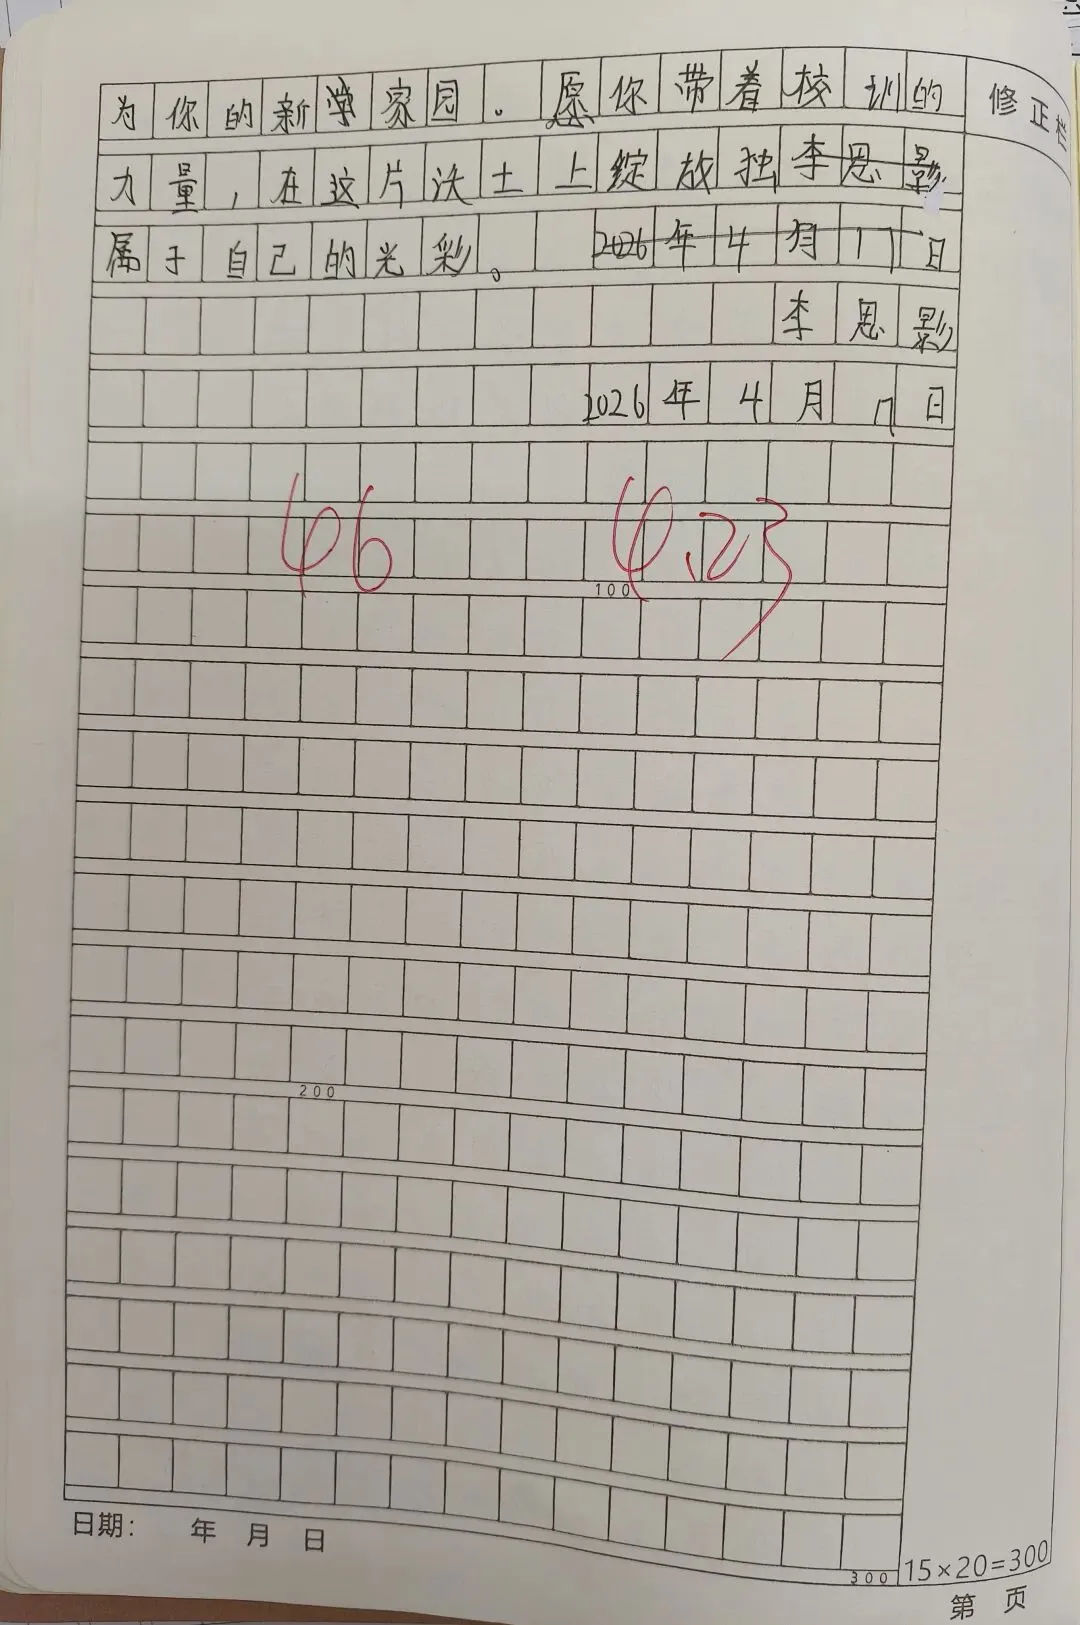 为你的新学家园。愿你带着校训的
修正栏
力量，在这片沃土上绽放独李恩影
属于自己的光彩。2026年4月17日
李恩影
2026年4月17日
46 4.23
100
200
300
日期： 年 月 日
15×20=300
第 页